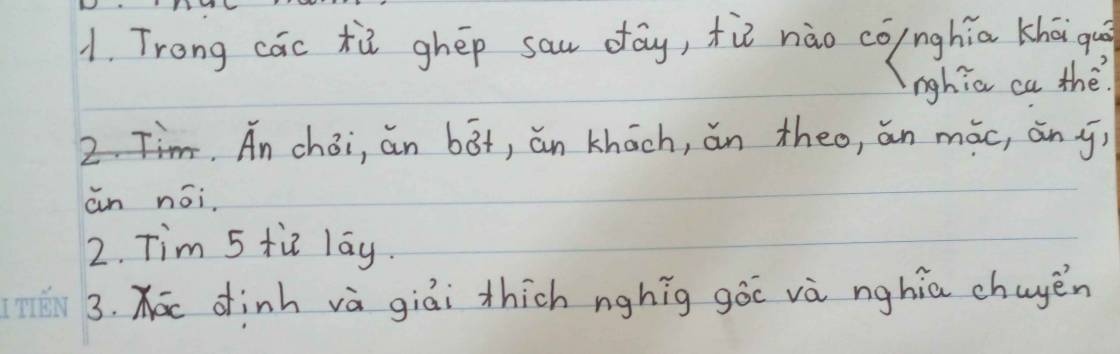 1. Trong các từ ghép sau đây, từ nào có nghĩa khái quá
nghĩa cụ thể.
2. Tìm. Ăn chơi, ăn bớt, ăn khách, ăn theo, ăn mặc, ăn ý,
ăn nói.
2. Tìm 5 từ láy.
I TIẾN
3. Xác định và giải thích nghĩg gốc và nghĩa chuyển